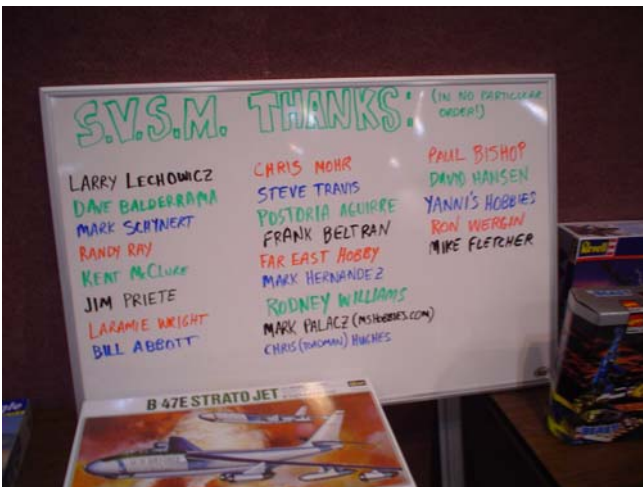 S.V.S.M. THANKS:
(IN NO PARTICULAR
ORDER!)
LARRY LECHOWICZ
DAVE BALDERRAMA
MARK SCHYNERT
RANDY RAY
KENT McCLURE
JIM PRIETE
LARAMIE WRIGHT
BILL ABBOTT
CHRIS MOHR
STEVE TRAVIS
POSTORIA AGUIRRE
FRANK BELTRAN
FAR EAST HOBBY
MARK HERNANDEZ
RODNEY WILLIAMS
MARK PALACZ (MSHOBBIES.COM)
CHRIS (TOADMAN) HUGHES
PAUL BISHOP
DAVID HANSEN
YANNI'S HOBBIES
RON WERGIN
MIKE FLETCHER
B-47E STRATO JET
Revell